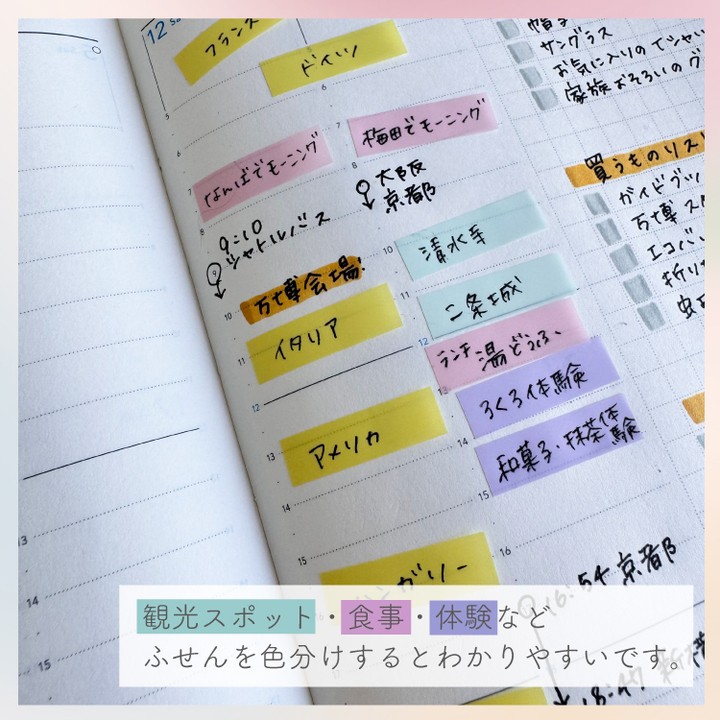 12
フランス
ドイツ
5
6
7
なんばでモーニング
7
梅田でモーニング
8
8
9:10
シャトルバス
9
大阪
京都
万博会場!
10
イタリア
11
12
13
アメリカ
14
15
ハンガリー
10
清水寺
11
二条城
12
ランチ 湯どうふ
13
ろくろ体験
14
和菓子・抹茶体験
15
16
16:54 京都
18:47
サングラス
お気に入りのTシャツ
家族おそろいのグ
買うものリス
ガイドブッ
万博ス
エコバ
折り
13
14
15
観光スポット・食事・体験など
ふせんを色分けするとわかりやすいです。